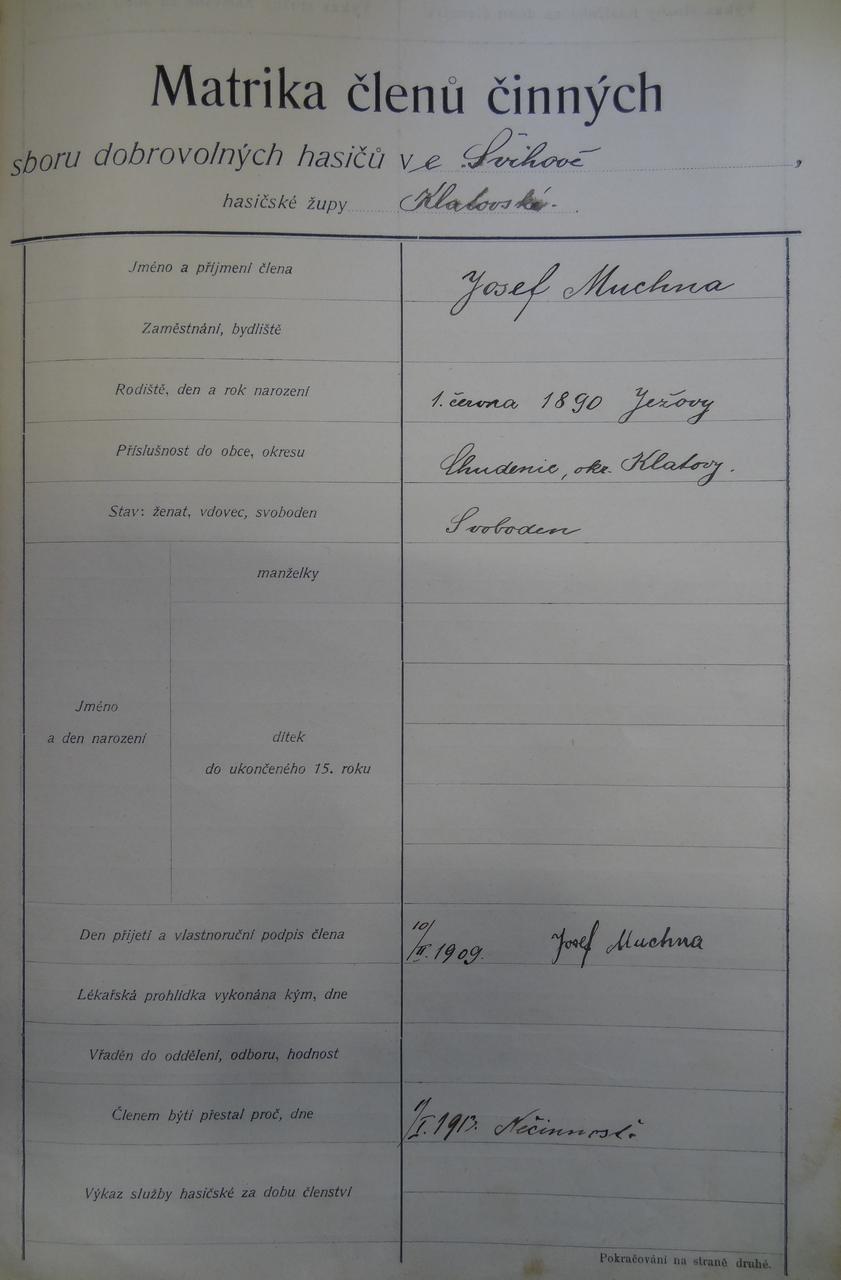 Matrika členů činných
sboru dobrovolných hasičů ve Švihově,
hasičské župy Klatovské.
Jméno a příjmení člena Josef Muchna
Zaměstnání, bydliště
Rodiště, den a rok narození 1. června 1890 Ježovy
Příslušnost do obce, okresu Chudenic, okr. Klatovy.
Stav: ženat, vdovec, svoboden Svoboden
manželky
Jméno
a den narození
dítek
do ukončeného 15. roku
Den přijetí a vlastnoruční podpis člena 10/II. 1909. Josef Muchna
Lékařská prohlídka vykonána kým, dne
Vřaděn do oddělení, odboru, hodnost
Členem býti přestal proč, dne /I. 1913. Nečinnost.
Výkaz služby hasičské za dobu členství
Pokračování na straně druhé.